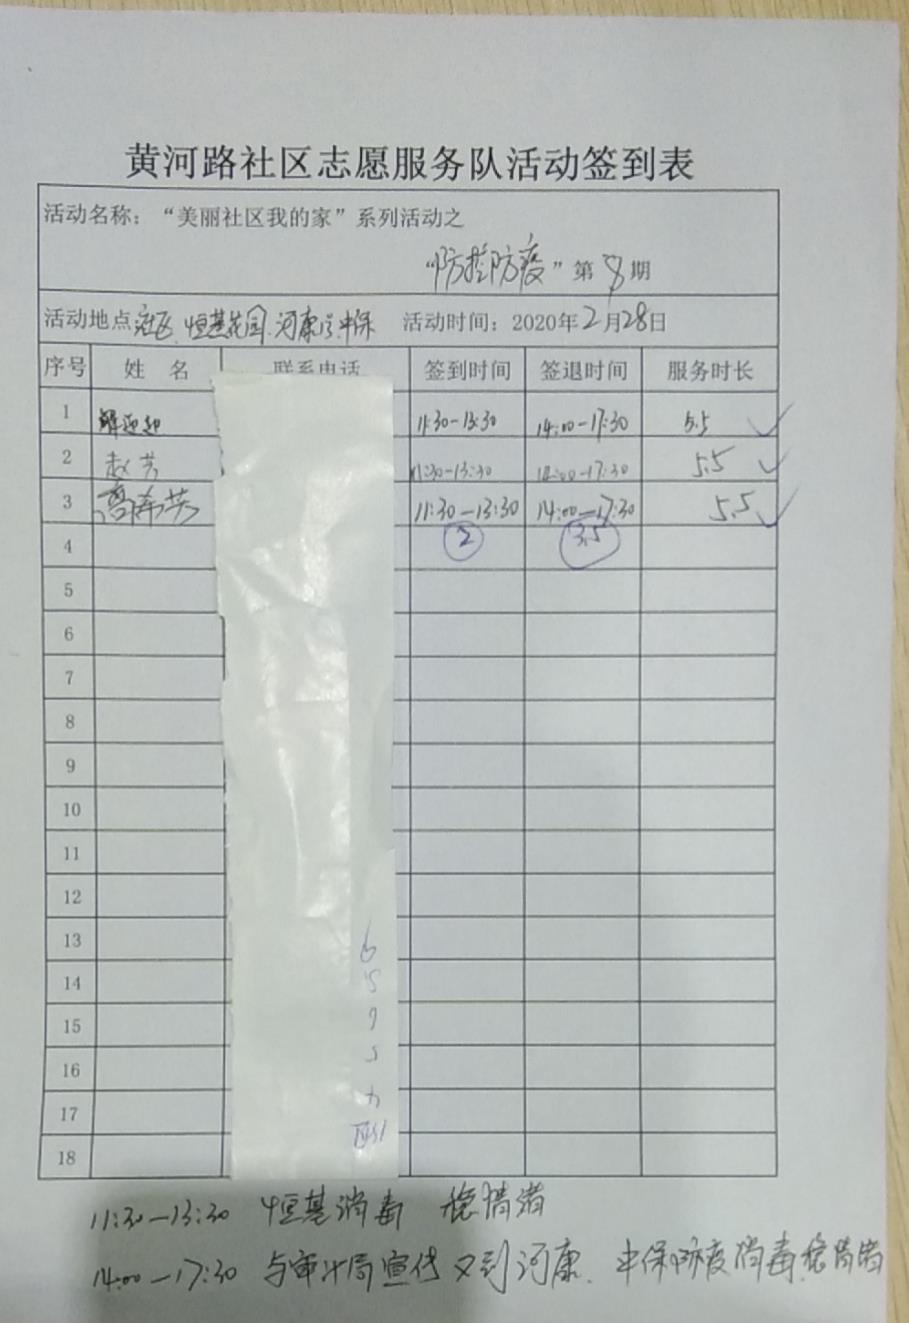 黄河路社区志愿服务队活动签到表
活动名称：“美丽社区我的家”系列活动之
“防控防疫”第8期
活动地点 社区、恒基花园、河康、中保 活动时间：2020年2月28日
序号 姓 名 联系电话 签到时间 签退时间 服务时长
1 11:30-13:30 14:00-17:30 5.5
2 赵芳 11:30-13:30 14:00-17:30 5.5
3 11:30-13:30 14:00-17:30 5.5
4 2 3.5
5
6
7
8
9
10
11
12
13
14
15
16
17
18
11:30-13:30 恒基消毒 稳情绪
14:00-17:30 与审计局宣传又到河康、中保防疫消毒稳情绪